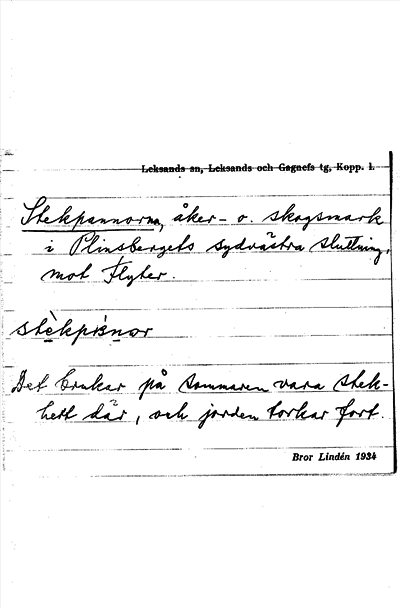 Leksands sn, Leksands och Gagnefs tg, Kopp. l.
Stekpannorna, åker- o. skogsmark
i Plinsbergets sydvästra sluttning,
mot Flyter.
stèkpànor
Det brukar på sommaren vara stek-
hett där, och jorden torkar fort.
Bror Lindén 1934